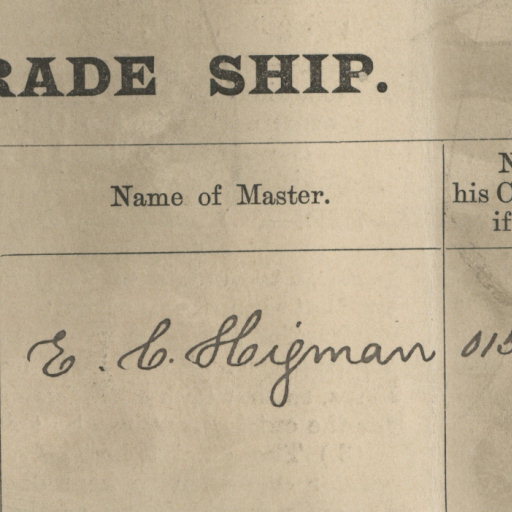 RADE SHIP.
Name of Master.
N
his C
if
E. C. Higman
015